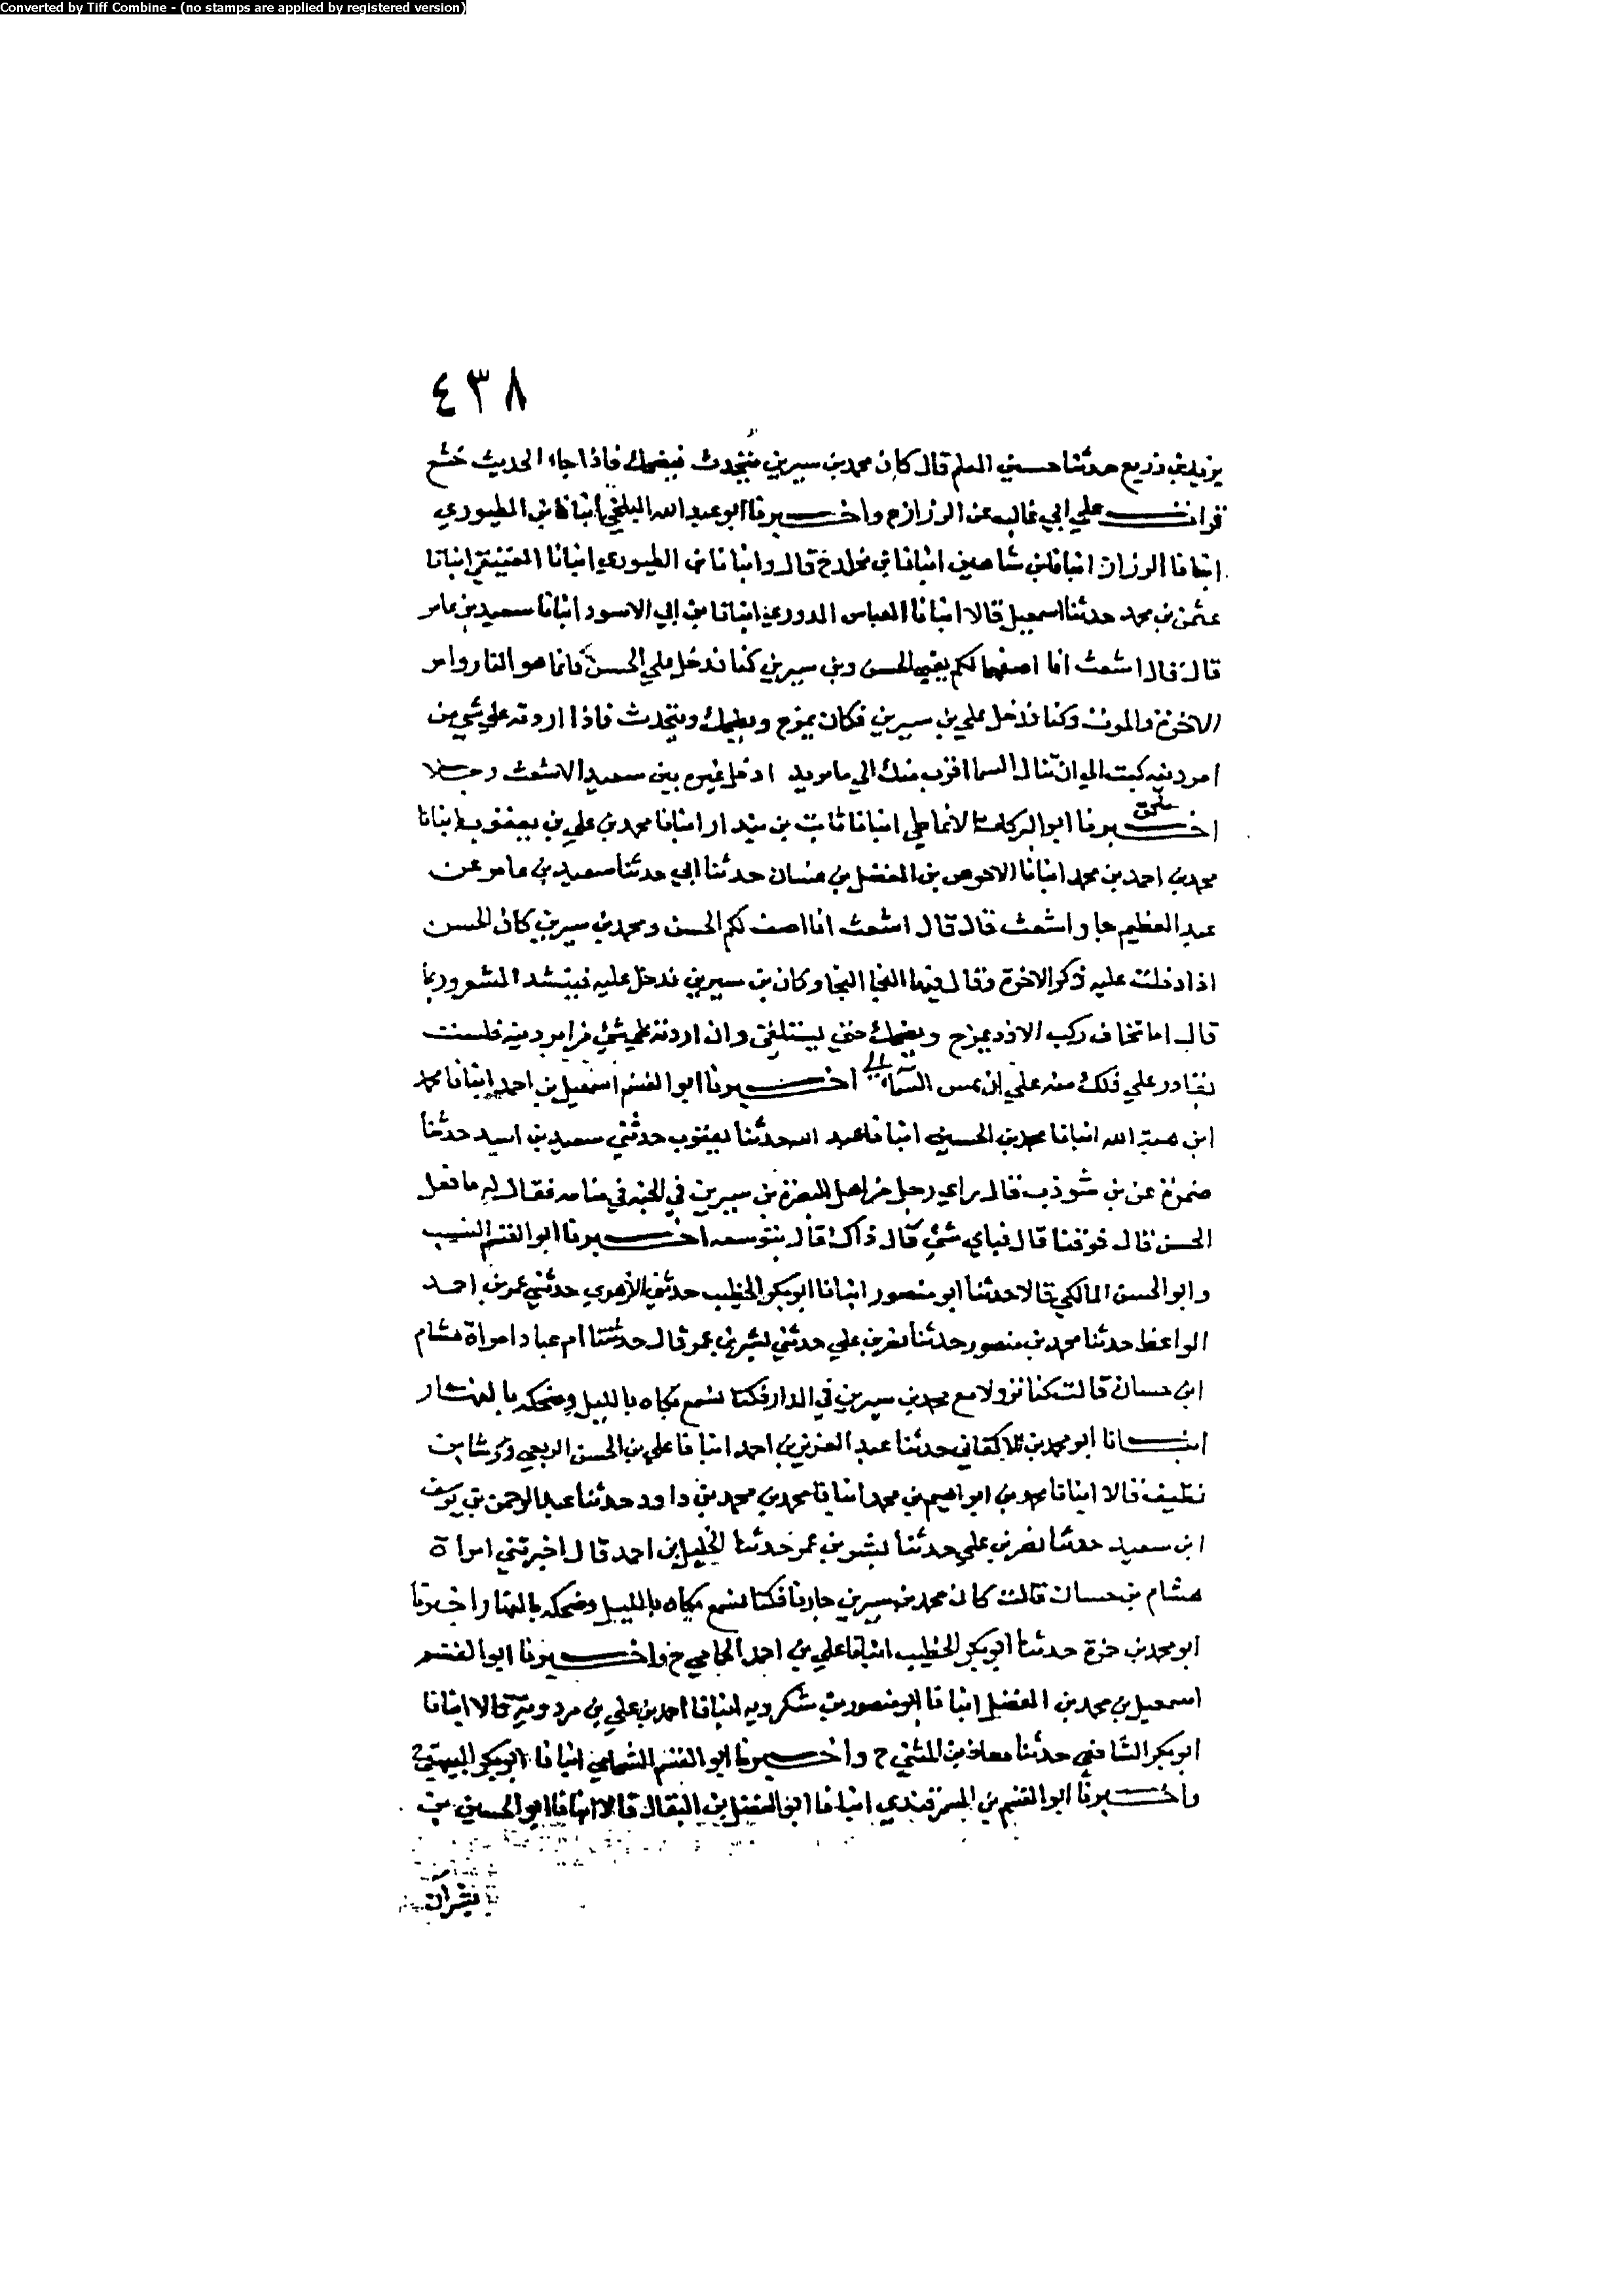 Converted by Tiff Combine - (no stamps are applied by registered version)
٤٣٨
يزيد بن زريع حدثنا حسين المعلم قال كان محمد بن سيرين يتحدث فيضحك فاذا جاء الحديث خشع
قرات علي ابي غالب عن الرزاز ح واخبرنا ابو عبد الله البلخي انبانا بن الطيوري
انبانا الرزاز انبانا بن شاهين انبانا بن مخلد ح قال وانبانا بن الطيوري انبانا العتيقي انبانا
عثمن بن محمد حدثنا اسمعيل قالا انبانا العباس الدوري انبانا بن ابي الاسود انبانا سعيد بن عامر
قال قال اشعث انا اصفهما لكم يعني الحسن وبن سيرين كنا ندخل علي الحسن فانما هو النار وامر
الاخرة والموت وكنا ندخل علي بن سيرين فكان يمزح ويضحك ويتحدث فاذا اردته علي شي من
امر دينه كنت الي ان تنال السما اقرب منك الي ما تريد ادخل غيره بين سعيد والاشعث رجلا
اخبرنا ابو البركات الانماطي انبانا ثابت بن بندار انبانا محمد بن علي بن يعقوب انبانا
محمد بن احمد بن محمد انبانا الاحوص بن المفضل بن غسان حدثنا ابي حدثنا سعيد بن عامر عن
عبد العظيم جار اشعث قال قال اشعث انا اصف لكم الحسن ومحمد بن سيرين كان الحسن
اذا دخلت عليه ذكر الاخرة وقال فيها النجا النجا وكان بن سيرين ندخل عليه فينشد الشعر وربما
قال اما تخاف ركب الازد يمزح ويضحك حتى يستلقي وان اردته علي شي من امر دينه فلست
بقادر علي ذلك منه علي ان يمس السماء اخبرنا ابو القسم اسمعيل بن احمد انبانا محمد
ابن هبة الله انبانا محمد بن الحسين انبانا عبد الله حدثنا يعقوب حدثني سعيد بن اسد حدثنا
ضمرة عن بن شوذب قال راي رجل من اهل البصرة بن سيرين في الجنة في منامه فقال له ما فعل
الحسن قال فوقنا قال فباي شي قال ذاك قال بتوسعه اخبرنا ابو القسم النسيب
وابو الحسن المالكي قالا حدثنا ابو منصور انبانا ابو بكر الخطيب حدثني الازهري حدثني عمر بن احمد
الواعظ حدثنا محمد بن منصور حدثنا نصر بن علي حدثني بشر بن عمر قال حدثتنا ام عباد امراة هشام
ابن حسان قالت كنا نزولا مع محمد بن سيرين في الدار فكنا نسمع بكاه بالليل وضحكه بالنهار
انبانا ابو محمد بن الاكفاني حدثنا عبد العزيز بن احمد انبانا علي بن الحسن الربعي ورشا بن
نظيف قالا انبانا محمد بن ابراهيم بن محمد انبانا محمد بن محمد بن داود حدثنا عبد الرحمن بن يوسف
ابن سعيد حدثنا نصر بن علي حدثنا بشر بن عمر حدثنا الخليل بن احمد قال اخبرتني امراة
هشام بن حسان قالت كان محمد بن سيرين جارنا فكنا نسمع بكاه بالليل وضحكه بالنهار اخبرنا
ابو محمد بن حمزة حدثنا ابو بكر الخطيب انبانا علي بن احمد الحمامي ح واخبرنا ابو القسم
اسمعيل بن محمد بن الفضل انبانا ابو منصور بن شكرويه انبانا احمد بن علي بن مردويه قالا انبانا
ابو بكر الشافعي حدثنا معاذ بن المثني ح واخبرنا ابو القسم الشحامي انبانا ابو بكر البيهقي ح
واخبرنا ابو القسم بن السمرقندي انبانا ابو الفضل بن البقال قالا انبانا ابو الحسين بن
بشران